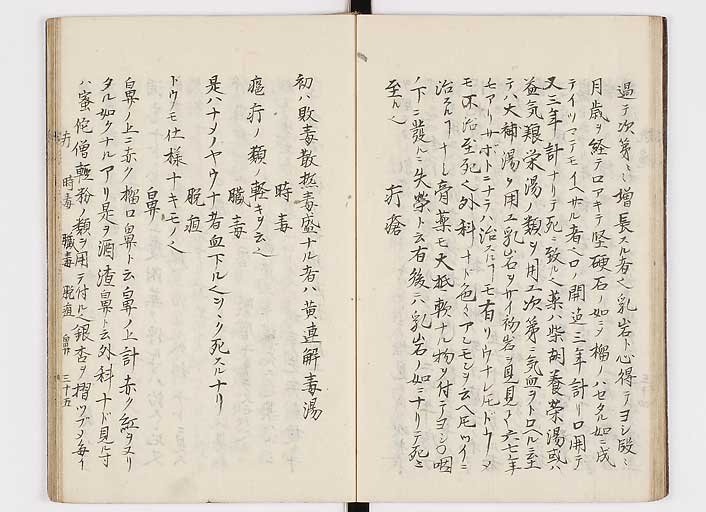 過テ次第〻ニ増長スル者ハ乳岩ト心得テヨシ段〻ニ
月歳ヲ経テロアキテ堅硬石ノ如ク榴ノハセタル如ニ成
テイツマテモイヘサル者也口ノ開迄三年計リ口開テ
又三年計ナリテ死ニ致ル也薬ハ柴胡養栄湯或ハ
益気養栄湯ノ類ヲ用ユ次第ニ気血ヲトロヘル至
テハ大補湯ヲ用ユ乳岩ヲサイ初岩ト見ヨ六七年
モアリサホトニナラハ治スルモ有リウナレモドウノメ
モ不治至死也外科ナド色〻アレモシヲ云ヘ𪜈ツイニ
治スルナシ膏薬モ大抵軟ナル物ヲ付テヨシ〇咽
ノ下ニ發ルニ失榮ト云有後ニハ乳岩ノ如ニナリテ死ニ
至ル也
疔瘡
初ハ敗毒散極毒盛ナル者ハ黄連解毒湯
時毒
瘟疔ノ類ノ軽キヲ云也
臓毒
是ハナメノヤウナ者血下ル也シヽク死スルナリ
脱疽
ドウノモ仕様ナキモノ也
鼻
鼻ノ上ニ赤ク榴口鼻ト云鼻ノ上計赤ク紅ヲヌリ
タル如クナルアリ是ヲ酒渣鼻ト云外科ナド見ル寸
ハ蜜佗僧軽粉ノ類ヲ用テ付ル也銀杏ヲ摺ツブメ毎イ
疔 時毒 臓毒 脱疽 鼻 三十五